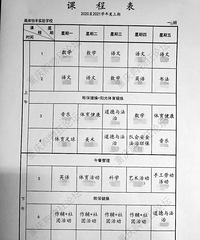 课 程 表
2020至2021学年度上期
课程 星期 时间 星期一 星期二 星期三 星期四 星期五
上午
1 数学 数学 语文 语文 语文
2 语文 语文 数学 英语 书法
阳保健操·阳光体育锻炼
3 音乐 体育健康 道德与法治 音乐 体育健康
4 体育足球 美术 道德与法治 队会安全法治环保
午餐管理
下午
5 英语 体育活动 科学 艺术活动 手工劳动活动
眼保健操
6 作辅+社团活动 作辅+社团活动 作辅+社团活动 作辅+社团活动 道德与法治